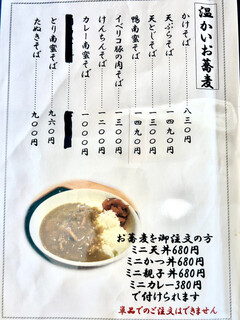 温かいお蕎麦
かけそば……八三〇円
天ぷらそば……一四九〇円
天とじそば……一四九〇円
鴨南蛮そば……一四九〇円
イベリコ豚の肉そば
けんちんそば
カレー南蛮そば……一〇〇〇円
とり南蛮そば……九六〇円
たぬきそば……九〇〇円
お蕎麦を御注文の方
ミニ天丼680円
ミニかつ丼680円
ミニ親子丼680円
ミニカレー380円
で付けられます
単品でのご注文はできません